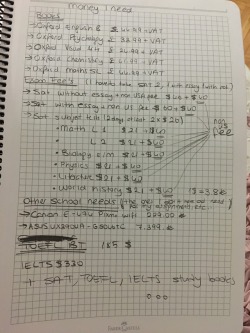 money I need
Books
→ Oxford English B £ 44.99 + VAT
→ Oxford Psychology £ 38.99 + VAT
→ Oxford Visual Art £ 26.99 + VAT
→ Oxford Chemistry £ 41.99 + VAT
→ Oxford maths SL £ 44.99 + VAT
Exam Fee's (I have to take SAT 2, 1 with essay 1 with out)
→ Sat without essay + non USA fee $ 46 + $40
→ Sat with essay + non US fee $ 60 + $40
→ Sat subject test (2 day at cost 26 x $20)
non US fee
• Math L 1 $21 + $40
L 2 $21 + $40
• Biology e/m $21 + $40
• Physics $21 + $40
• Literatur $21 + $40
• World History $21 + $40
Other school needs
→ Canon E-494 Pixma wifi 299.00
→ ASUS 7.399
TOEFL IBT 185 $
IELTS $330
+ SAT, TOEFL, IELTS study books